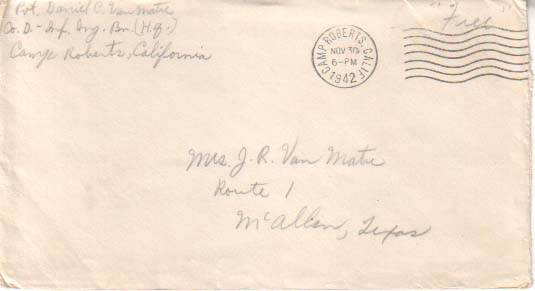 Pvt. Daniel C. Van Matre
Co. D.- Inf. Trg. Bn. (Hq.)
Camp Roberts, California
CAMP ROBERTS, CALIF.
NOV 30
6-PM
1942
"Free"
Mrs. J. R. Van Matre
Route 1
McAllen, Texas